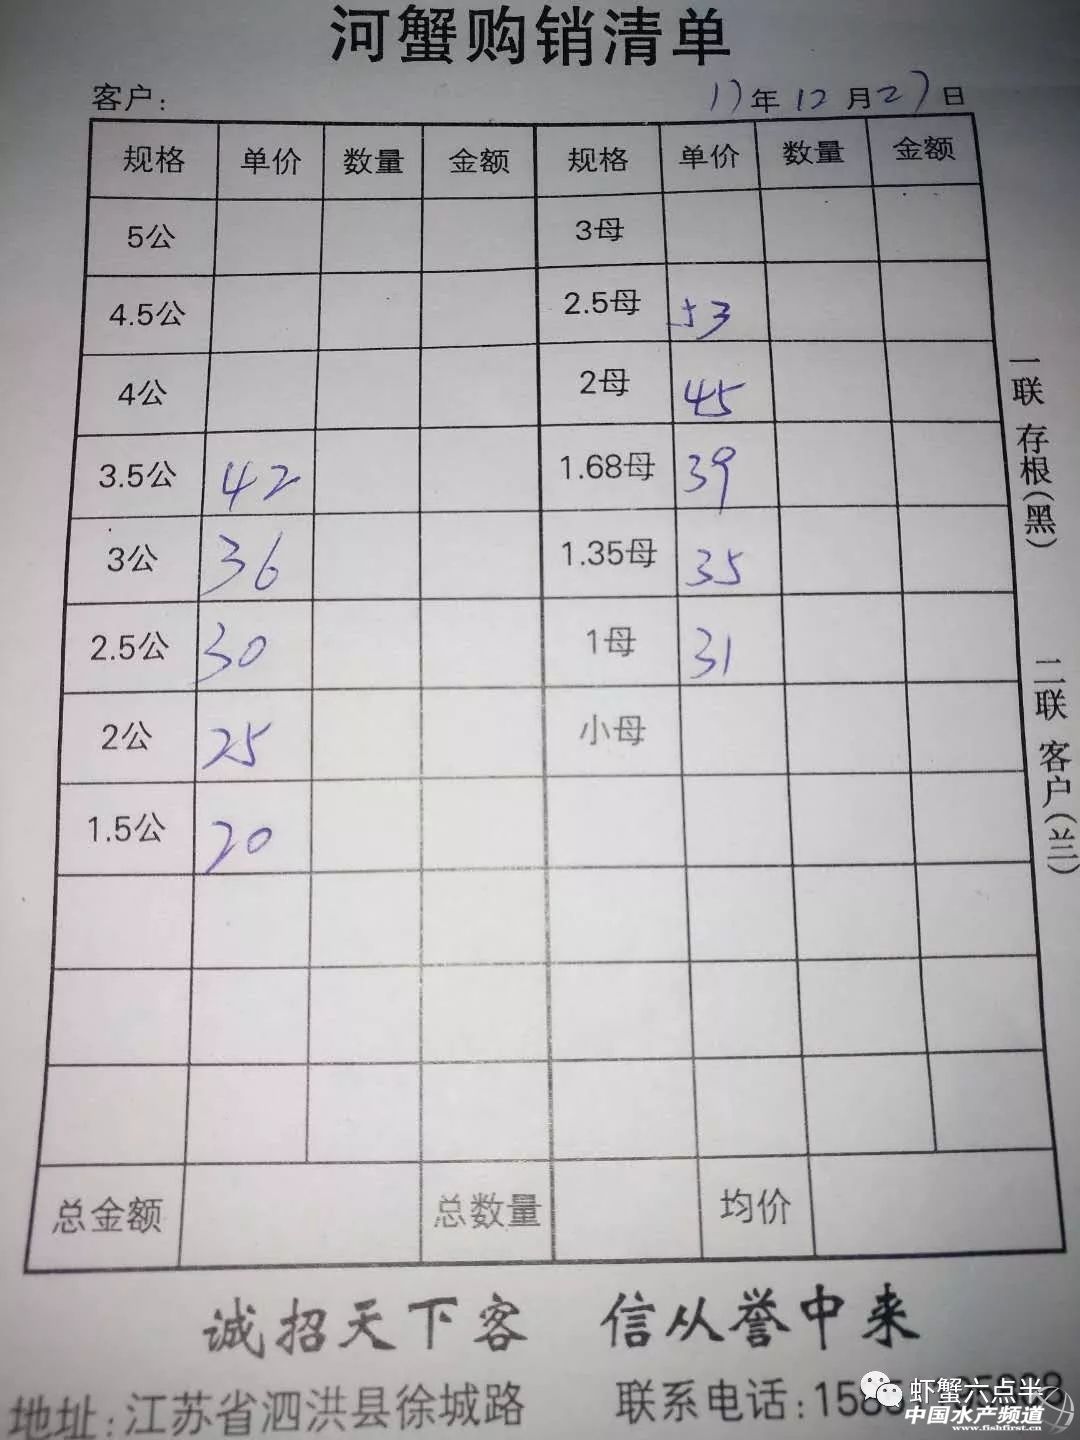 河蟹购销清单
客户: 17年12月27日
规格 单价 数量 金额 规格 单价 数量 金额
5公 3母
4.5公 2.5母 53
4公 2母 45
3.5公 42 1.68母 39
3公 36 1.35母 35
2.5公 30 1母 31
2公 25 小母
1.5公 20
总金额 总数量 均价
一联 存根(黑) 二联 客户(兰)
诚招天下客 信从誉中来
地址:江苏省泗洪县徐城路 联系电话:1585
虾蟹六点半
中国水产频道
www.fishfirst.cn